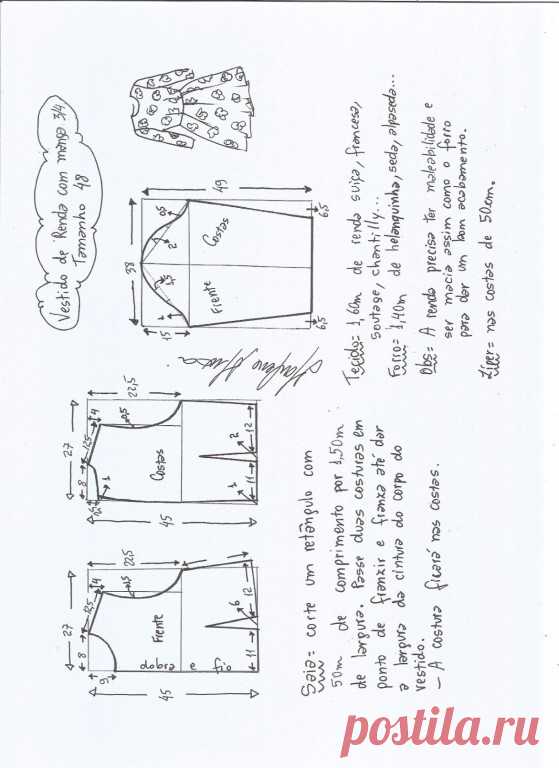 Vestido de Renda com manga 3/4
Tamanho 48
27
8
12,5
4
22,5
9
0,5
Frente
dobra e fio
6
11
12
45
27
8
12,5
4
22,5
0,5
1
Costas
2
1
11
12
45
38
15
49
1
1,5
2
0,5
Frente
Costas
6,5
6,5
Saia = corte um retângulo com
50m de comprimento por 1,50m
de largura. Passe duas costuras em
ponto de franzir e franza até dar
a largura da cintura do corpo do
vestido.
- A costura ficará nas costas.
Tecido = 1,60m de renda suiça, francesa,
soutage, chantilly...
Forro = 1,40m de helanquinha, seda, alpaseda...
Obs = A renda precisa ter maleabilidade e
ser macia assim como o forro
para dar um bom acabamento.
Zíper = nas costas de 50cm.
postila.ru